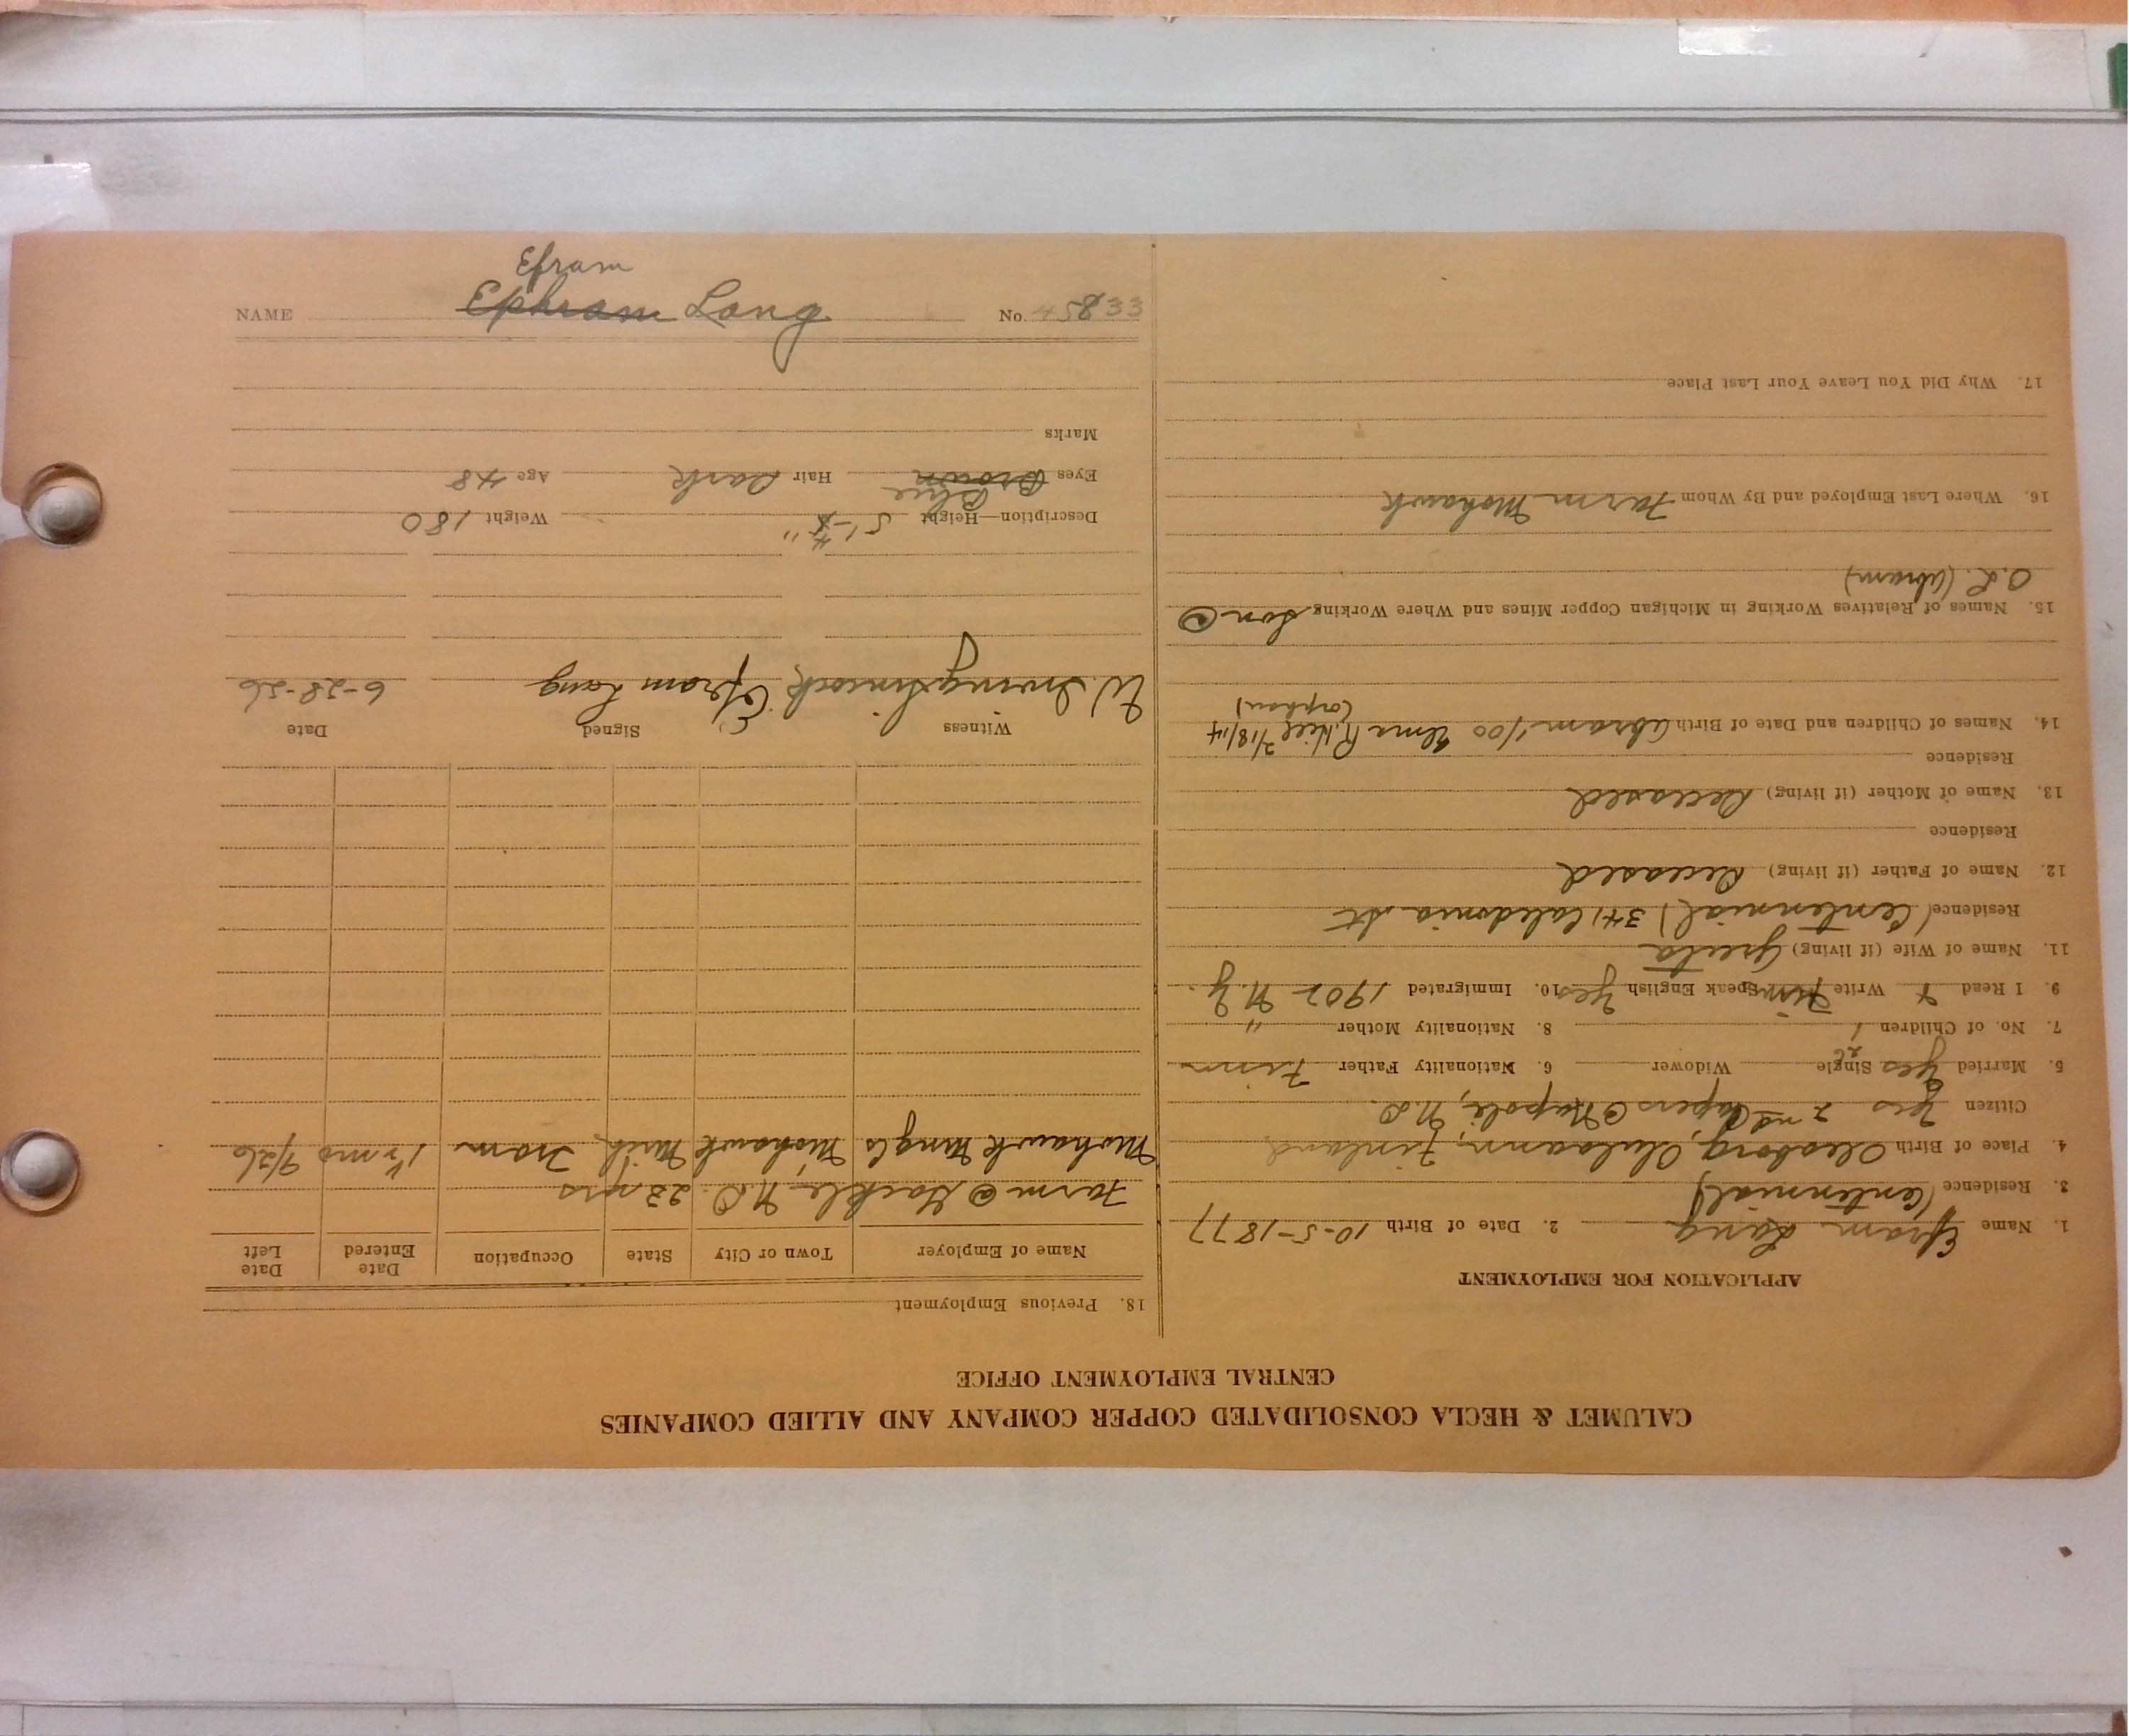 Efram
NAME Ephram Long No. 45833
CALUMET & HECLA CONSOLIDATED COPPER COMPANY AND ALLIED COMPANIES
CENTRAL EMPLOYMENT OFFICE
APPLICATION FOR EMPLOYMENT
1. Name Efram Lang 2. Date of Birth 10-5-1877
3. Residence (Centennial)
4. Place of Birth Uleaborg, Finland
Citizen Yes 2nd Papers @ Napole, N.D.
5. Married Yes Single Widower 6. Nationality Father Finn
7. No. of Children 1 8. Nationality Mother "
9. I Read + Write Finn Speak English Yes 10. Immigrated 1902 N.Y.
11. Name of Wife (if living) Greeta
Residence (Centennial) 341 Caledonia St
12. Name of Father (if living) Deceased
Residence
13. Name of Mother (if living) Deceased
Residence
14. Names of Children and Date of Birth Abram 1/00 Elma 2/18/14
(orphan)
15. Names of Relatives Working in Michigan Copper Mines and Where Working Son @
O.L. (Abram)
16. Where Last Employed and By Whom Farm Mohawk
17. Why Did You Leave Your Last Place
18. Previous Employment
Name of Employer Town or City State Occupation Date Entered Date Left
Farm @ Gackle N.D. 23 yrs
Mohawk Mng Co Mohawk Mich. Tram 1½ mo 4/26
Witness Signed Date
W. Irving Simcock Efram Lang 6-28-26
Description—Height 5'-4" Weight 180
Blue
Eyes Brown Hair Dark Age 48
Marks